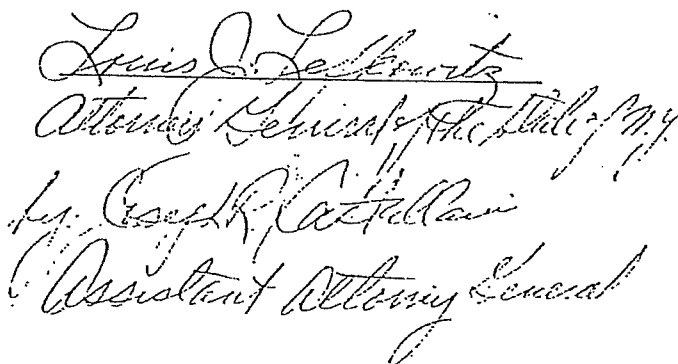 Louis J. Lefkowitz
Attorney General of the State of N.Y.
by: Joseph R. Castellani
Assistant Attorney General